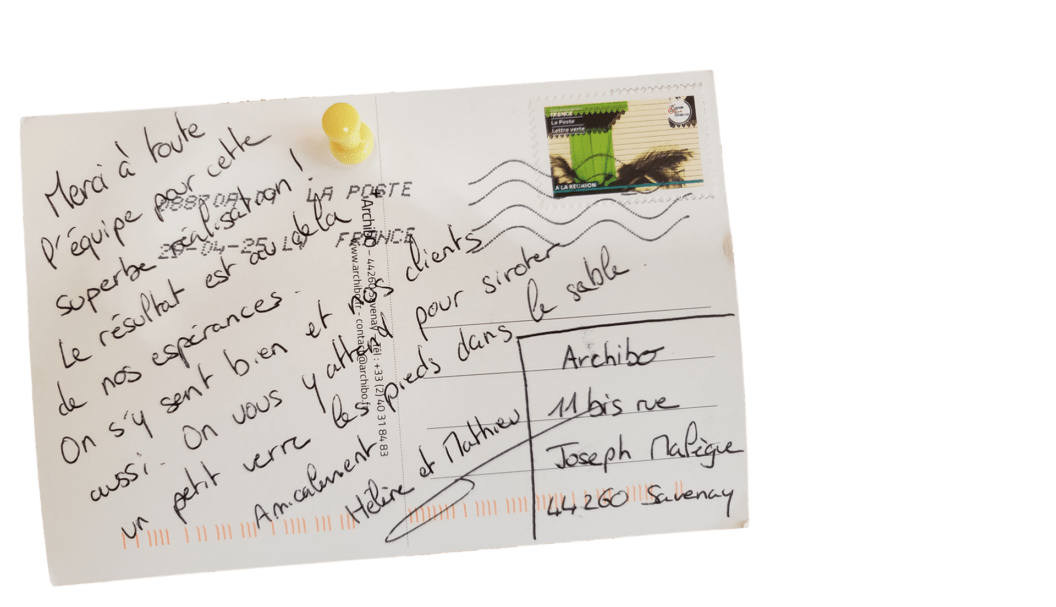 Merci à toute
l'équipe pour cette
superbe réalisation !
Le résultat est au delà
de nos espérances.
On s'y sent bien et nos clients
aussi. On vous y attend pour siroter
un petit verre les pieds dans le sable.
Amicalement
Hélène et Mathieu
LA POSTE
FRANCE
Archibo - 44260 Savenay - tél : +33 (2) 40 31 84 83
www.archibo.fr - contact@archibo.fr
FRANCE
La Poste
Lettre verte
A LA REUNION
Archibo
11 bis rue
Joseph Malègue
44260 Savenay